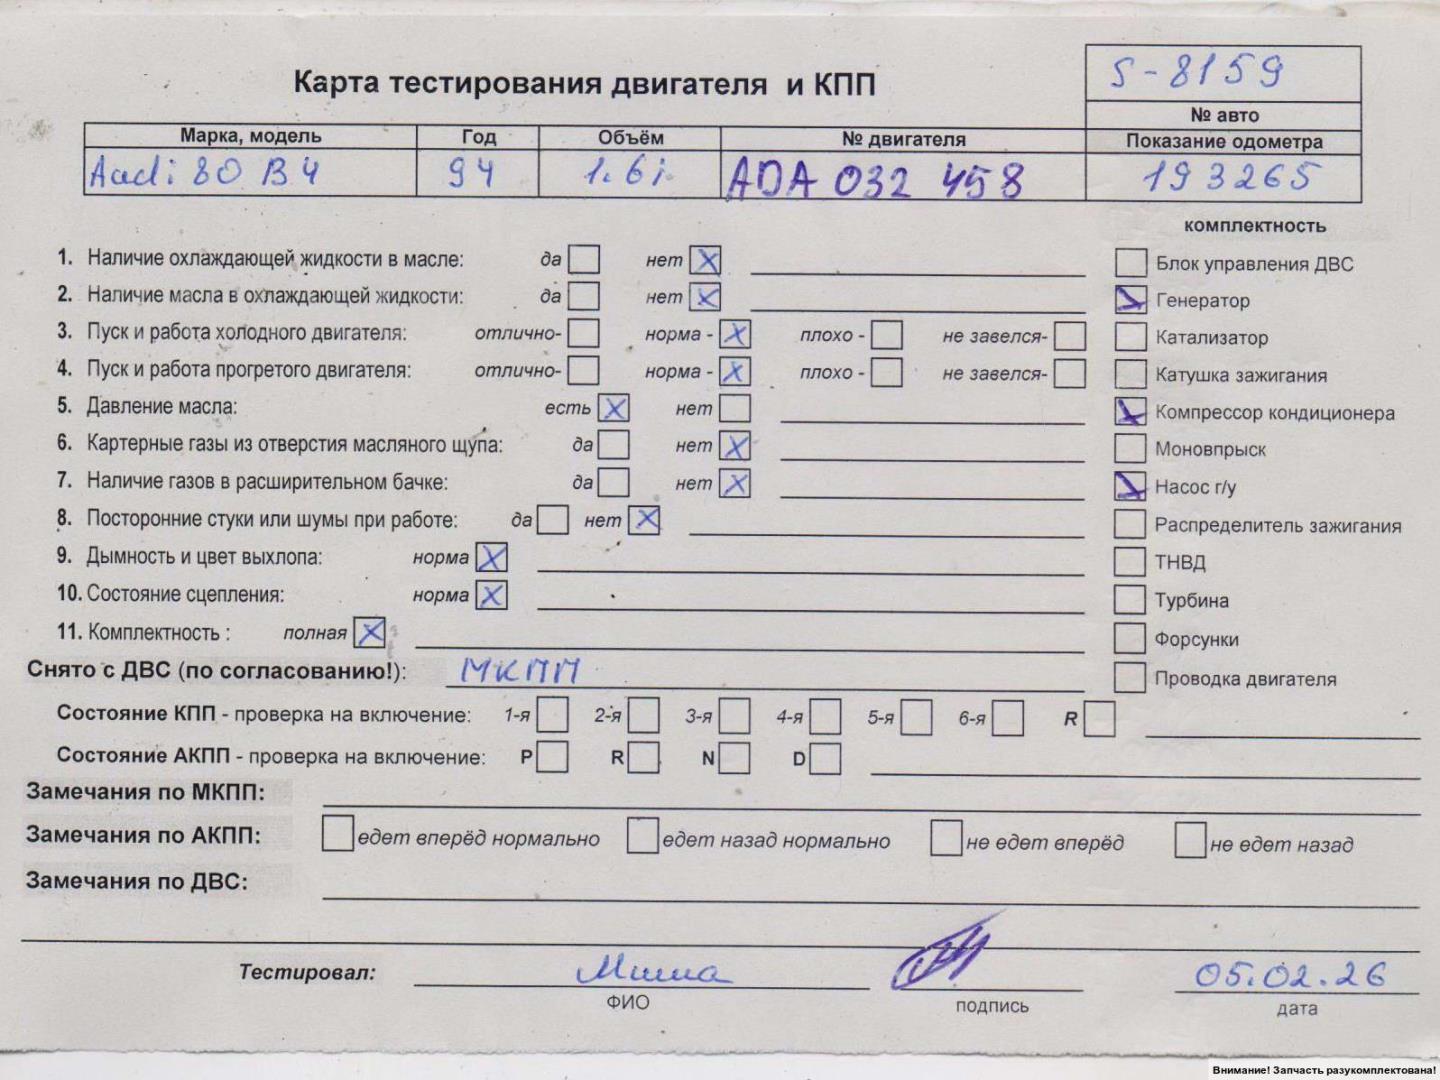 S-8159
Карта тестирования двигателя и КПП
№ авто
Марка, модель Год Объём № двигателя Показание одометра
Audi 80 B4 94 1.6i ADA 032 458 193265
комплектность
1. Наличие охлаждающей жидкости в масле: да нет X
Блок управления ДВС
2. Наличие масла в охлаждающей жидкости: да нет X
Генератор
3. Пуск и работа холодного двигателя: отлично- норма - X плохо - не завелся-
Катализатор
4. Пуск и работа прогретого двигателя: отлично- норма - X плохо - не завелся-
Катушка зажигания
5. Давление масла: есть X нет
Компрессор кондиционера
6. Картерные газы из отверстия масляного щупа: да нет X
Моновпрыск
7. Наличие газов в расширительном бачке: да нет X
Насос г/у
8. Посторонние стуки или шумы при работе: да нет X
Распределитель зажигания
9. Дымность и цвет выхлопа: норма X
ТНВД
10. Состояние сцепления: норма X
Турбина
11. Комплектность : полная X
Форсунки
Снято с ДВС (по согласованию!): МКПП
Проводка двигателя
Состояние КПП - проверка на включение: 1-я 2-я 3-я 4-я 5-я 6-я R
Состояние АКПП - проверка на включение: P R N D
Замечания по МКПП:
Замечания по АКПП: едет вперёд нормально едет назад нормально не едет вперёд не едет назад
Замечания по ДВС:
Тестировал: Миша 05.02.26
ФИО подпись дата
Внимание! Запчасть разукомплектована!